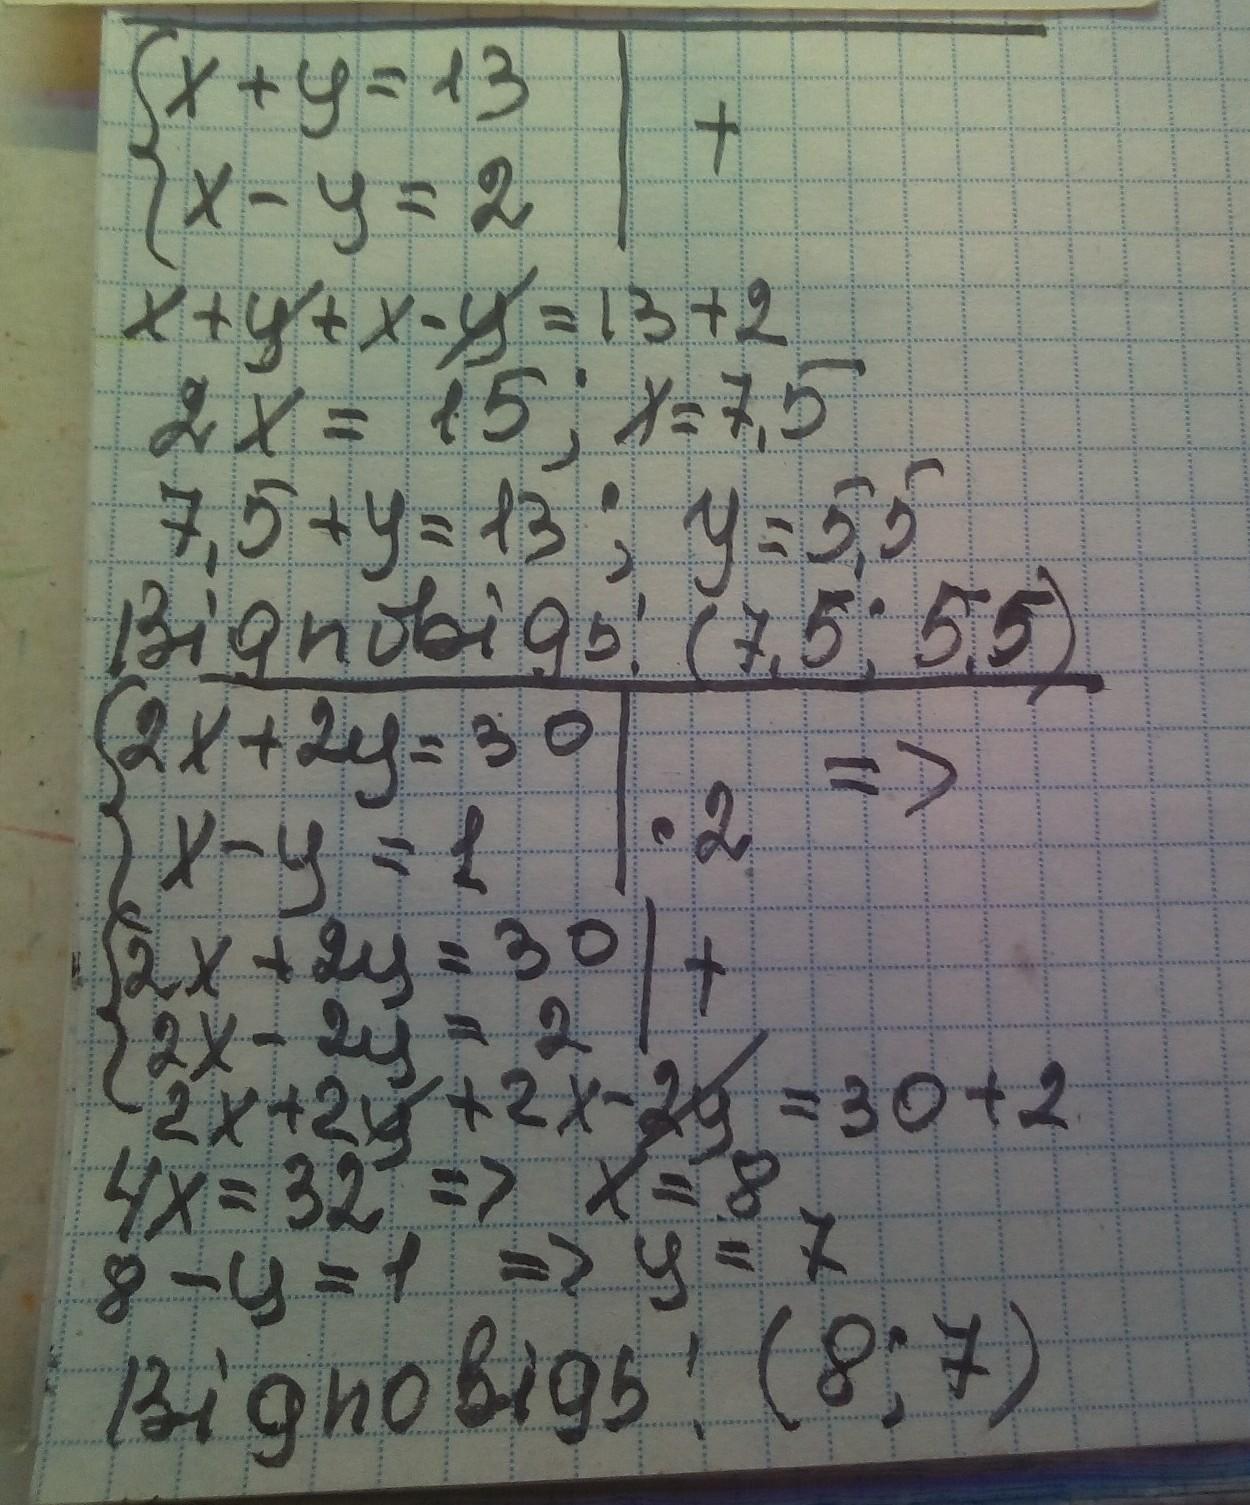 {x+y=13 | +
{x-y=2
x+y+x-y=13+2
2x=15; x=7,5
7,5+y=13; y=5,5
Відповідь: (7,5; 5,5)
{2x+2y=30 | =>
{x-y=1 | ·2
{2x+2y=30 | +
{2x-2y=2
2x+2y+2x-2y=30+2
4x=32 => x=8
8-y=1 => y=7
Відповідь: (8;7)